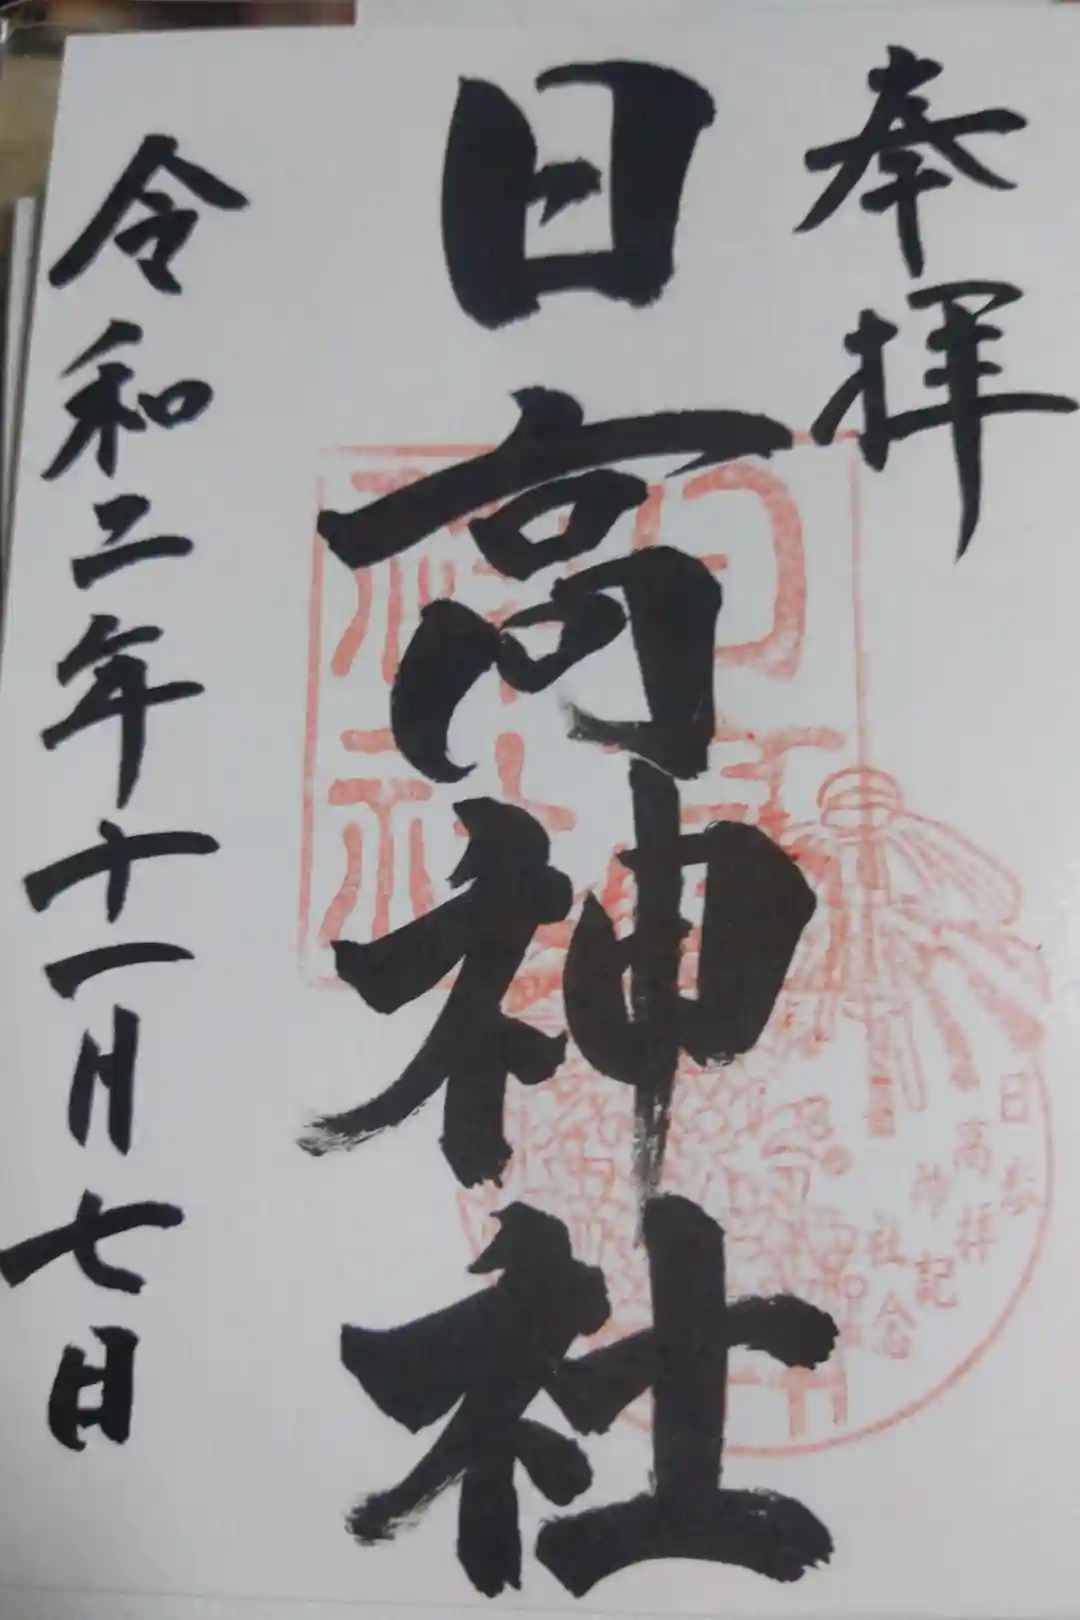 奉拝
日高神社
令和二年十一月七日
日高神社
日高神社
参拝記念